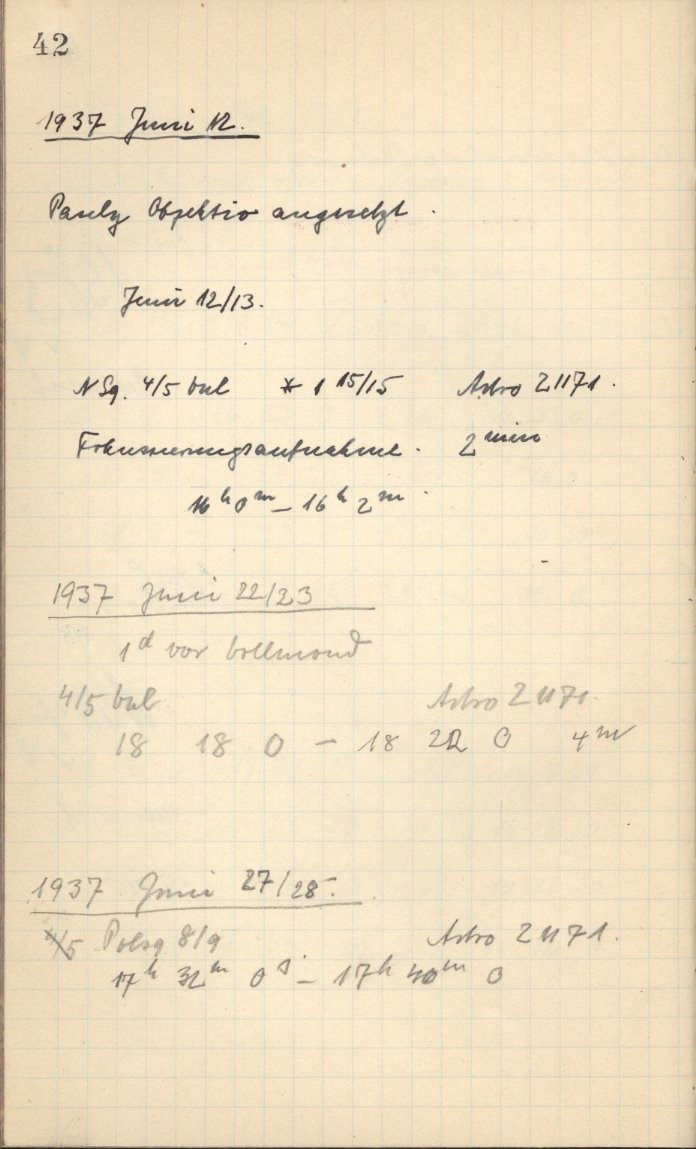 42
1937 Juni 12.
Pauly Objektiv angesetzt.
Juni 12/13.
N Sg. 4/5 bul * 1 15/15 Astro Z 1171.
Fokussierungsaufnahme. 2 min
16 h 0 m – 16 h 2 m.
1937 Juni 22/23
1 d vor Vollmond
4/5 bul Astro Z 1171.
18 18 0 – 18 22 0 4 m
1937 Juni 27/28.
Polsq 8/9 Astro Z 1171.
17 h 32 m 0 s – 17 h 40 m 0